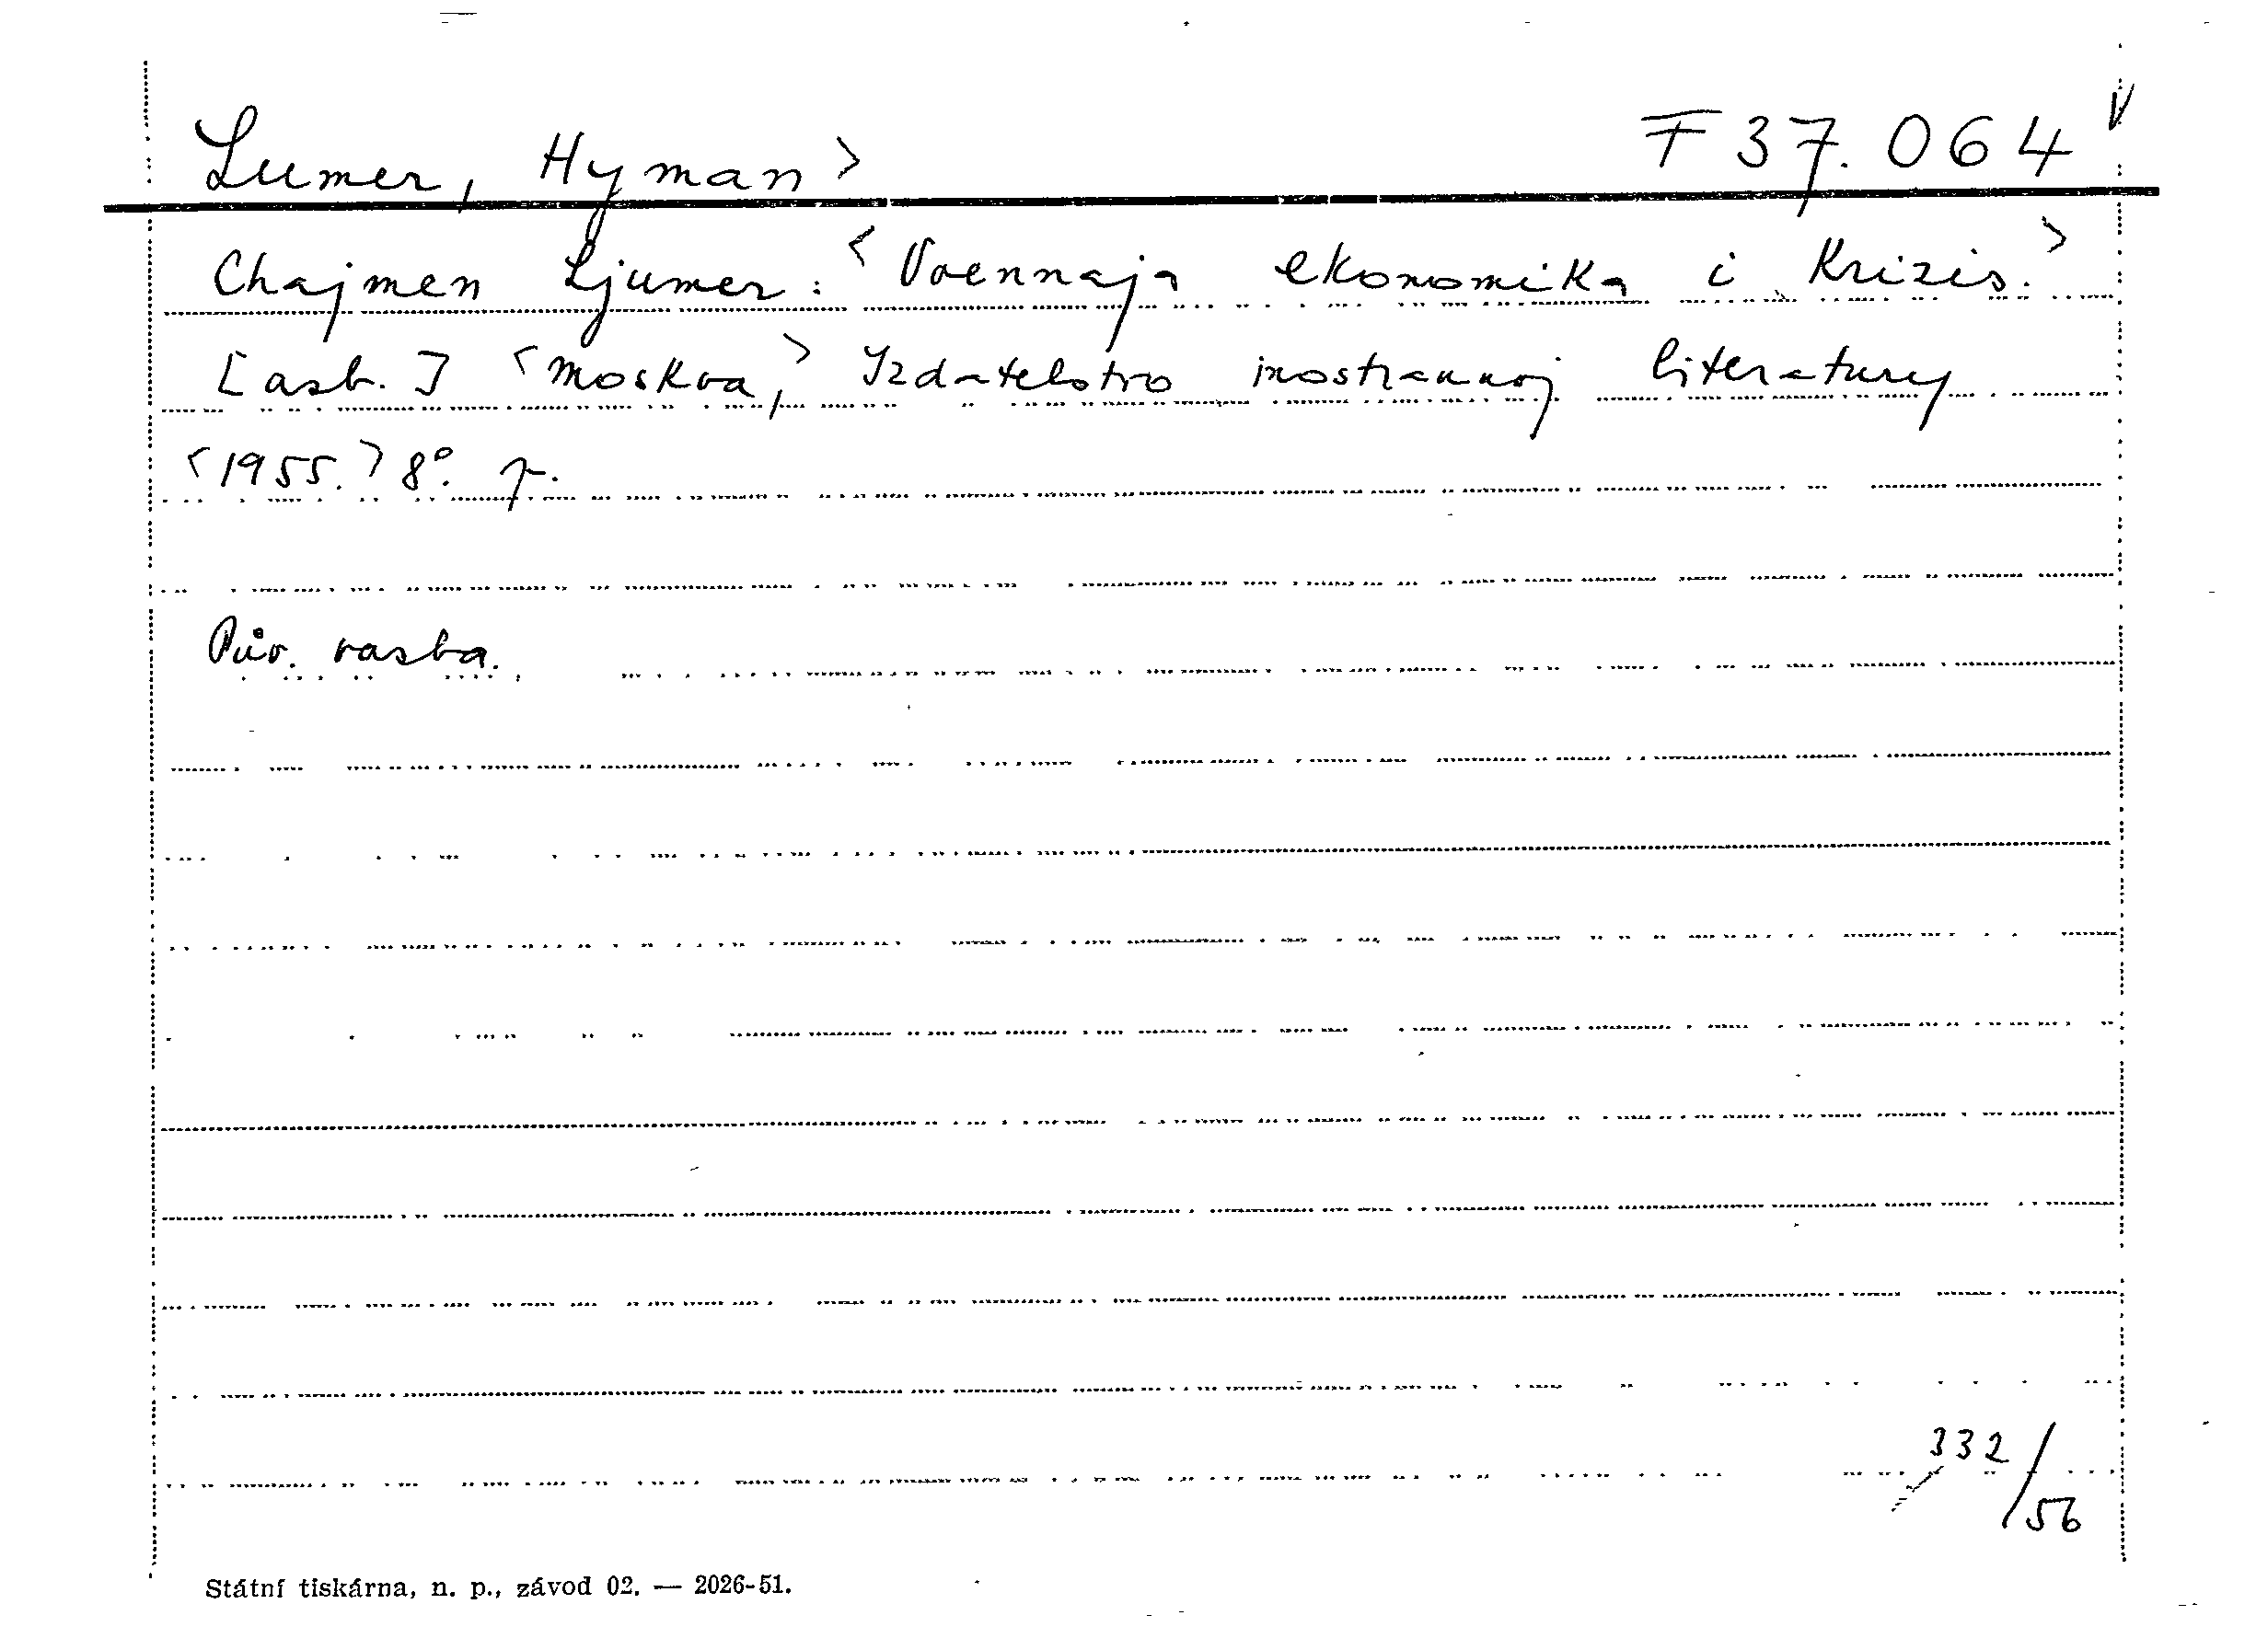 Lumer, Hyman> F 37.064 V
Chajmen Ljumer: <Voennaja ekonomika i Krizis.>
[asb.] <Moskva,> Izdatelstvo inostrannoj literatury
<1955.> 8°. p.
Pův. vasba.
332/56
Státní tiskárna, n. p., závod 02. — 2026-51.